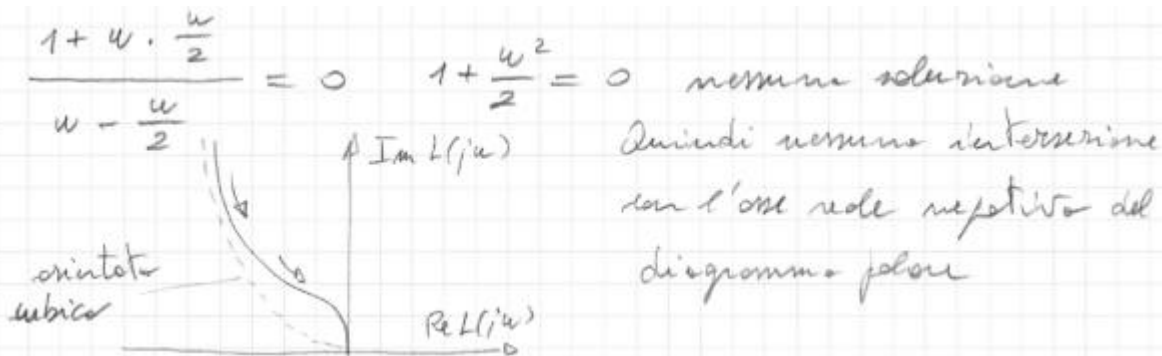 1 + ω · ω/2
――――― = 0   1 + ω²/2 = 0   nessuna soluzione
ω - ω/2
Im L(jω)
Quindi nessuna intersezione
con l'asse reale negativo del
diagramma polare
asintoto
cubico
Re L(jω)